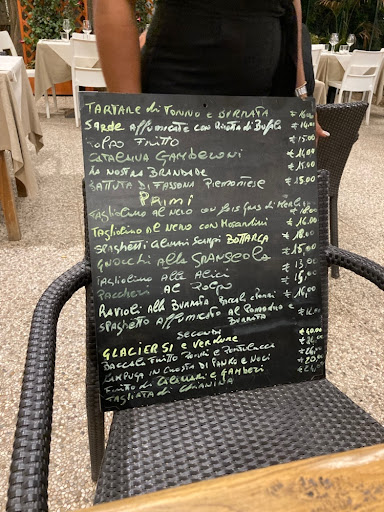 TARTARE di TONNO e BURRATA € 16.00
SARDE AFFUMICATE con RICOTTA di BUFALA € 14.00
POLPO FRITTO € 15.00
CATALANA GAMBERONI € 16.00
LA NOSTRA BRANDADE € 15.00
BATTUTA DI FASSONA PIEMONTESE € 15.00
PRIMI
TAGLIOLINO AL NERO CON
TAGLIOLINO AL NERO CON MOSCARDINI € 16.00
SPAGHETTI SCAMPI BOTTARGA € 18.00
GNOCCHI ALLA GRANSEOLA € 15.00
TAGLIOLINO ALLE ALICI € 13.00
PACCHERI AL POLPO € 15.00
RAVIOLI ALLA BURRATA € 14.00
SPAGHETTO AFFUMICATO AL POMODORO e BURRATA
SECONDI
GLACIER 51 e VERDURE
BACCALÀ FRITTO e PUNTARELLE
IN CROSTA DI PANKO e NOCI
FRITTO DI CALAMARI e GAMBERI
TAGLIATA DI CHIANINA